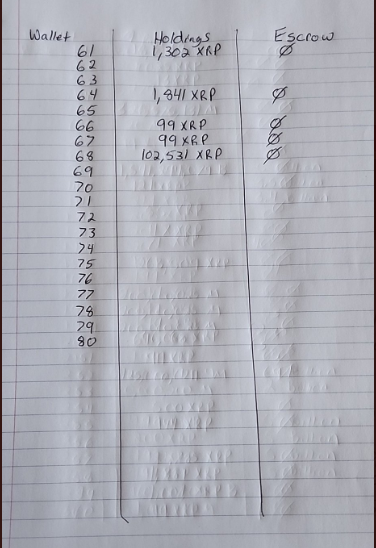 Wallet Holdings Escrow
61 1,302 XRP Ø
62
63
64 1,841 XRP Ø
65
66 99 XRP Ø
67 99 XRP Ø
68 102,531 XRP Ø
69
70
71
72
73
74
75
76
77
78
79
80